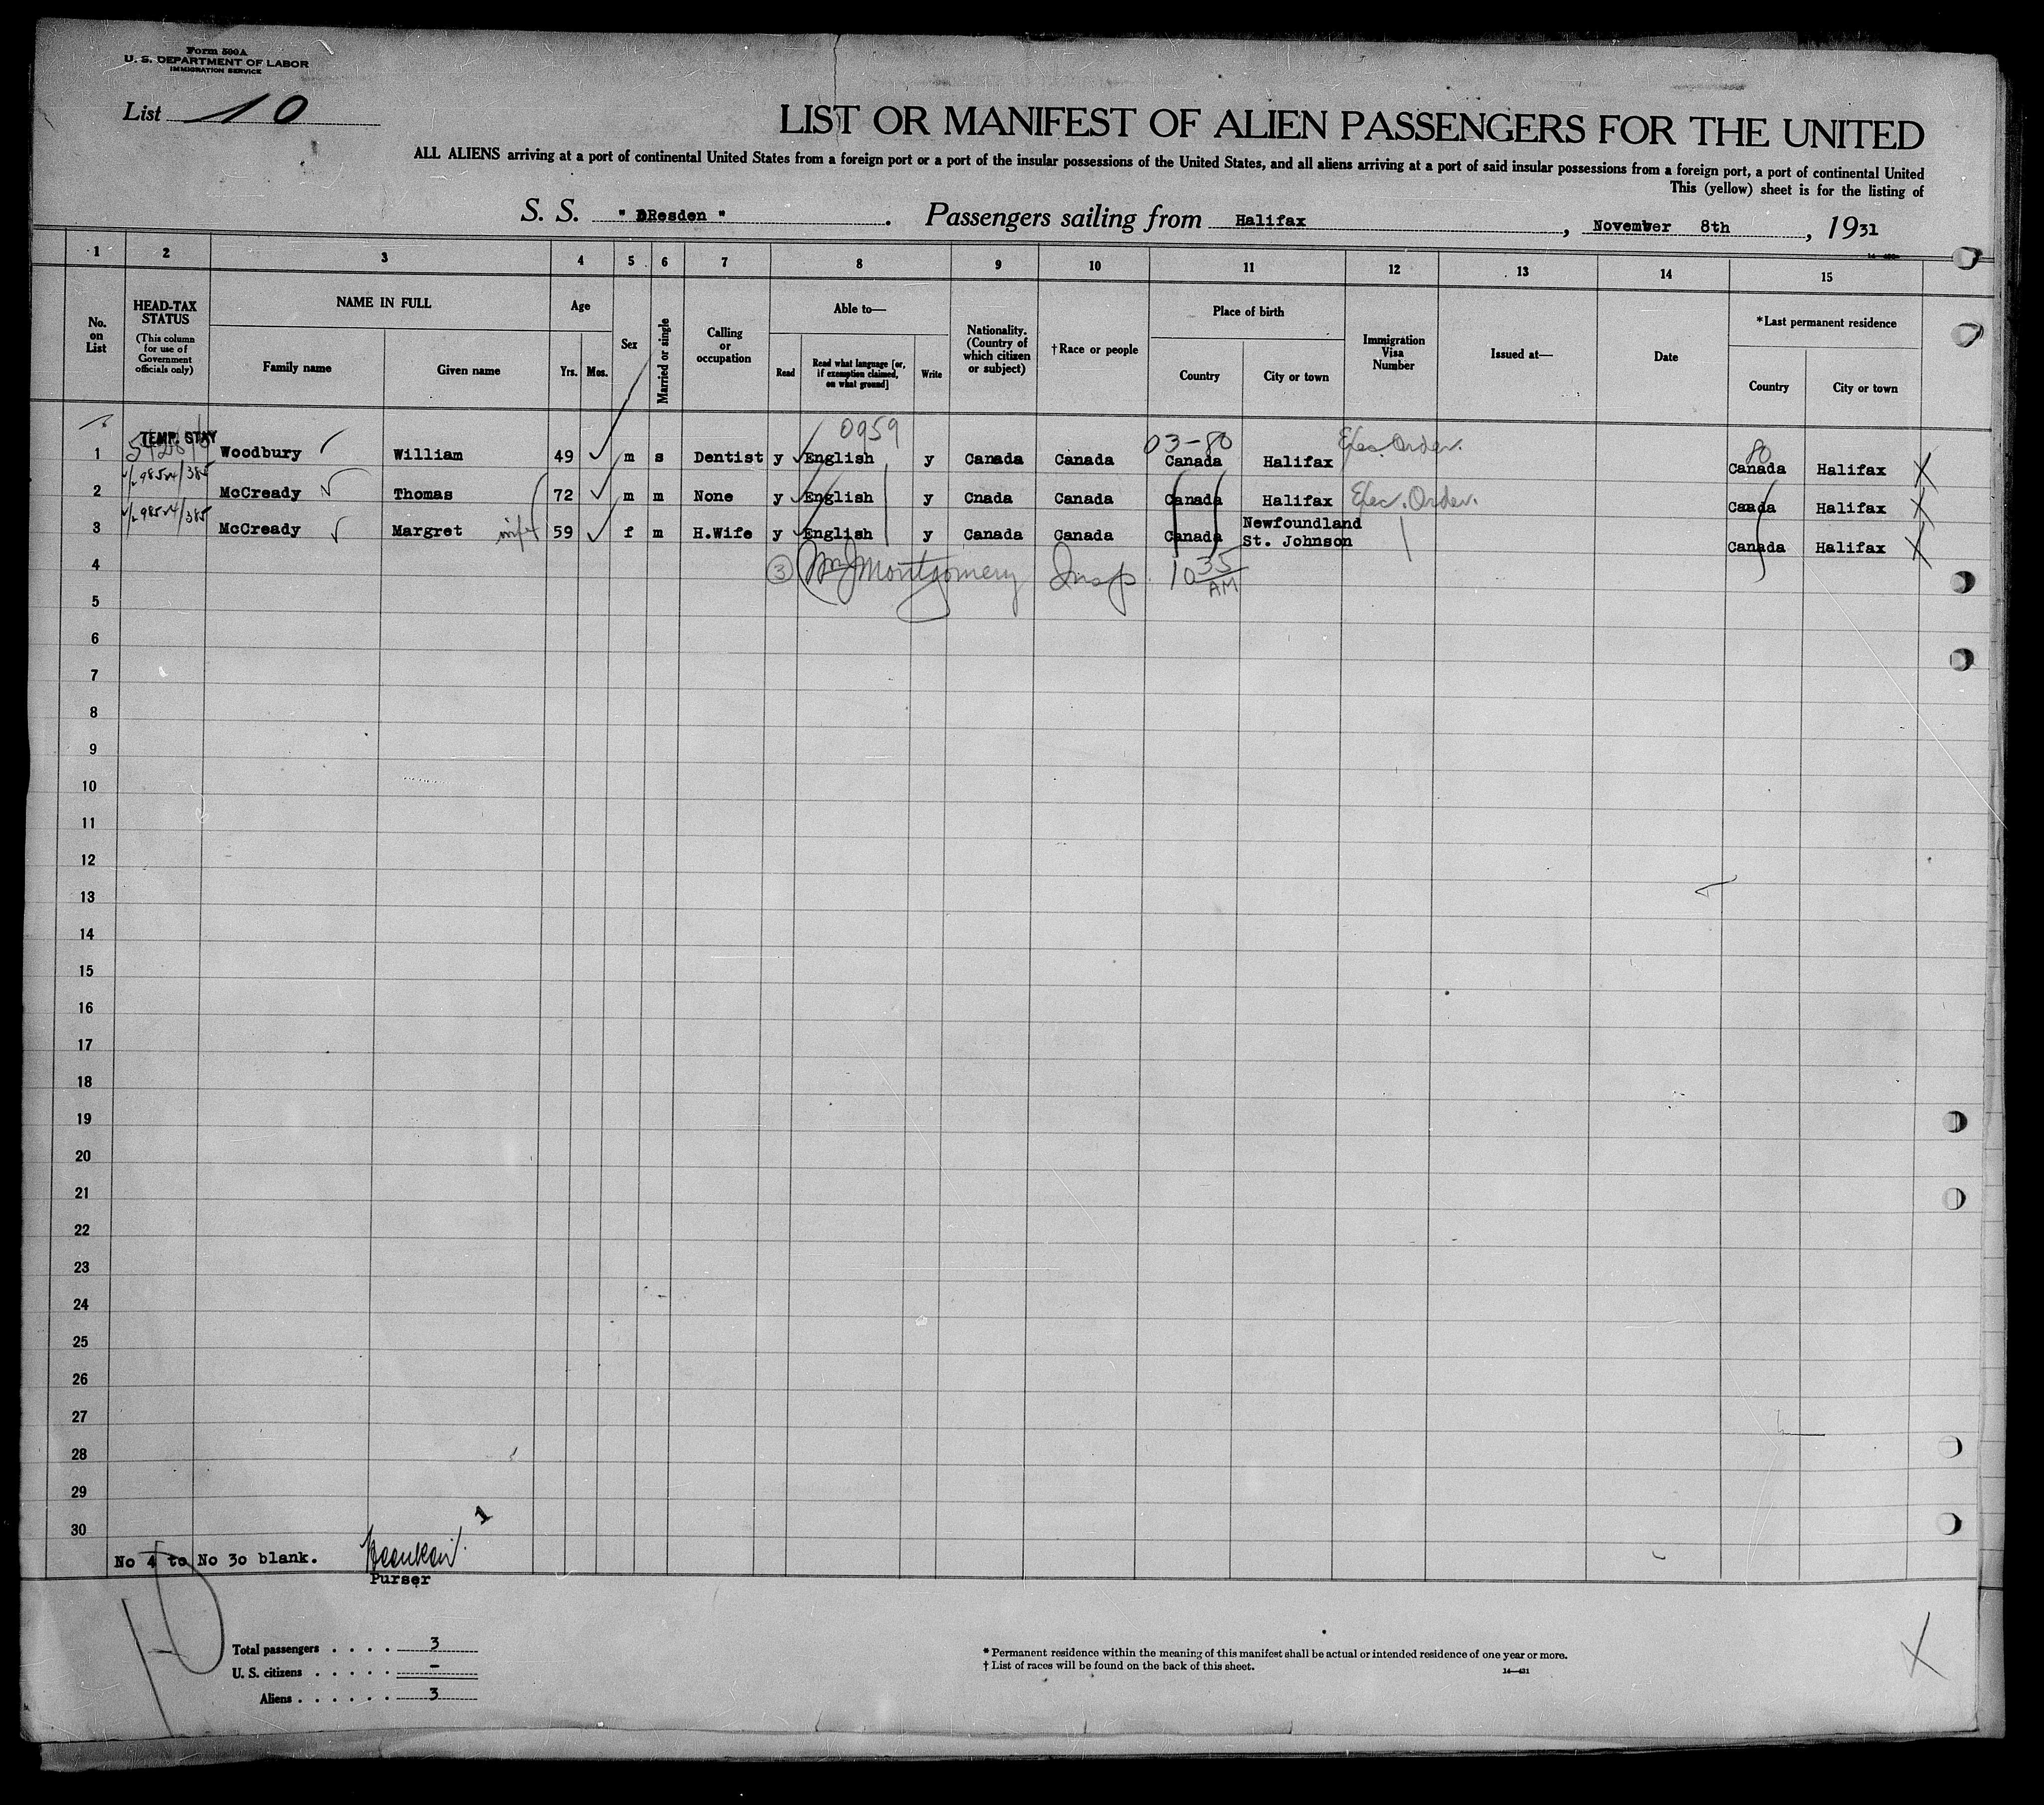 Form 500 A
U. S. DEPARTMENT OF LABOR
IMMIGRATION SERVICE
List 10
LIST OR MANIFEST OF ALIEN PASSENGERS FOR THE UNITED
ALL ALIENS arriving at a port of continental United States from a foreign port or a port of the insular possessions of the United States, and all aliens arriving at a port of said insular possessions from a foreign port, a port of continental United
This (yellow) sheet is for the listing of
S. S. "DResden". Passengers sailing from Halifax, November 8th, 1931
1 2 3 4 5 6 7 8 9 10 11 12 13 14 15
No. on List
HEAD-TAX STATUS
(This column for use of Government officials only)
NAME IN FULL
Family name
Given name
Age
Yrs. Mos.
Sex
Married or single
Calling or occupation
Able to—
Read
Read what language [or, if exemption claimed, on what ground]
Write
Nationality. (Country of which citizen or subject)
†Race or people
Place of birth
Country
City or town
Immigration Visa Number
Issued at—
Date
*Last permanent residence
Country
City or town
TEMP. STAY 0959 03-80 80
1 Woodbury William 49 m s Dentist y English y Canada Canada Canada Halifax Elec. Order. Canada Halifax X
2 McCready Thomas 72 m m None y English y Cnada Canada Canada Halifax Elec. Order. Canada Halifax X
3 McCready Margret wife 59 f m H.Wife y English y Canada Canada Canada Newfoundland St. Johnson Canada Halifax X
4 3 Wm J Montgomery Insp. 10 35 AM
5
6
7
8
9
10
11
12
13
14
15
16
17
18
19
20
21
22
23
24
25
26
27
28
29
1
30
No 4 to No 30 blank.
Purser
10
Total passengers . . . . 3
U. S. citizens . . . . . -
Aliens . . . . . . 3
* Permanent residence within the meaning of this manifest shall be actual or intended residence of one year or more.
† List of races will be found on the back of this sheet.
14—431
X